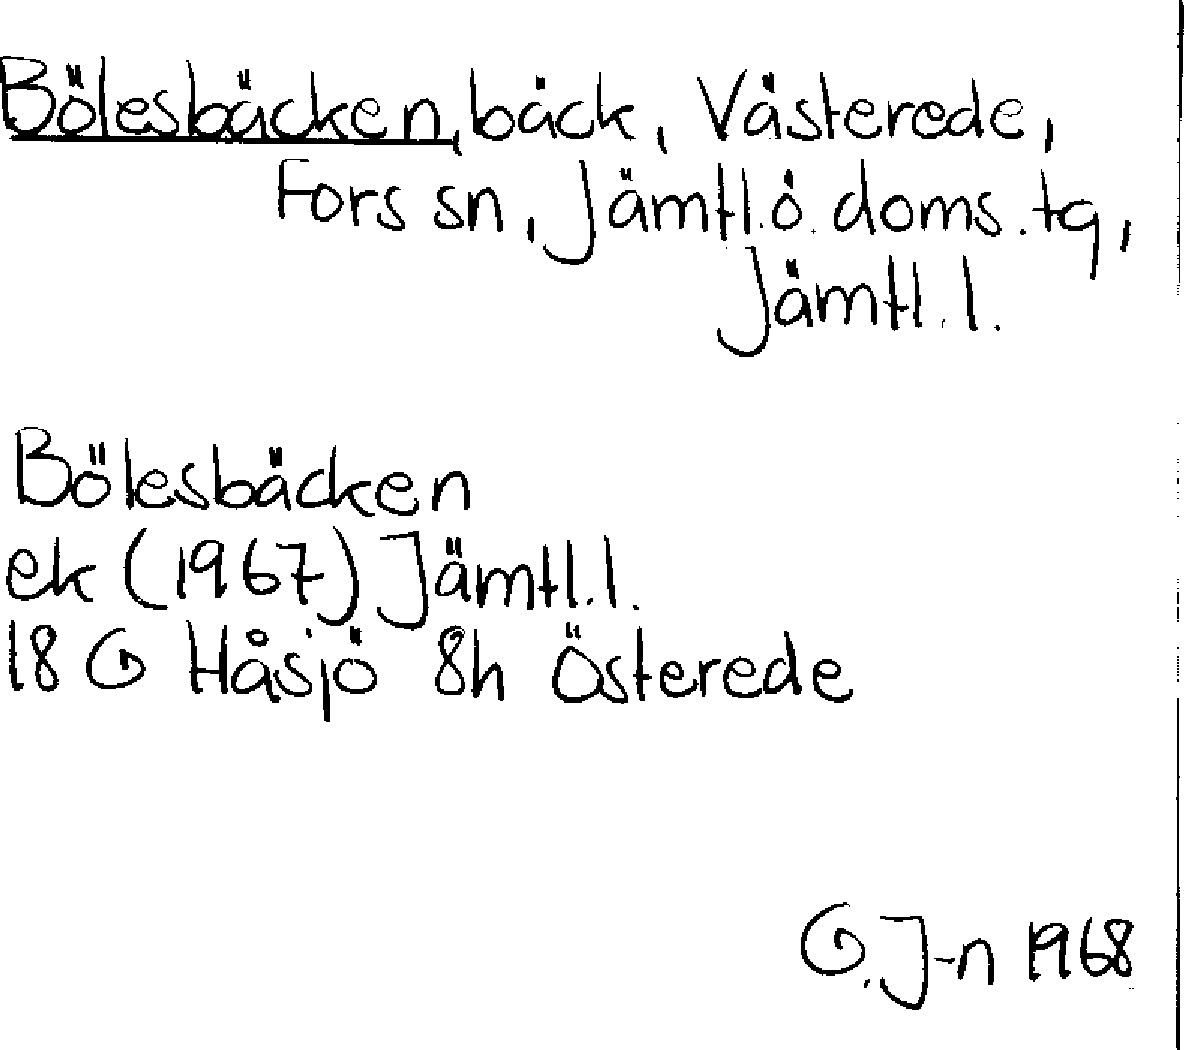 Bölesbäcken, bäck, Västerede,
Fors sn, Jämtl.ö. doms.tg,
Jämtl.l.
Bölesbäcken
ek (1967) Jämtl.l.
18 G Håsjö 8h Österede
G.J-n 1968